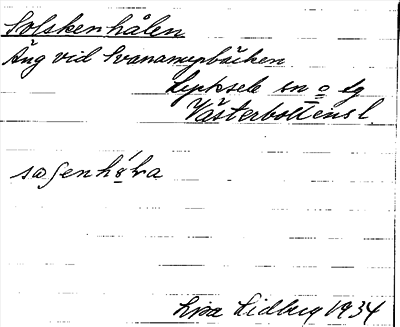 Solskenhålen
Äng vid Svanamyrbäcken
Lycksele sn o tg
Västerbottens l.
Lisa Lidberg 1934